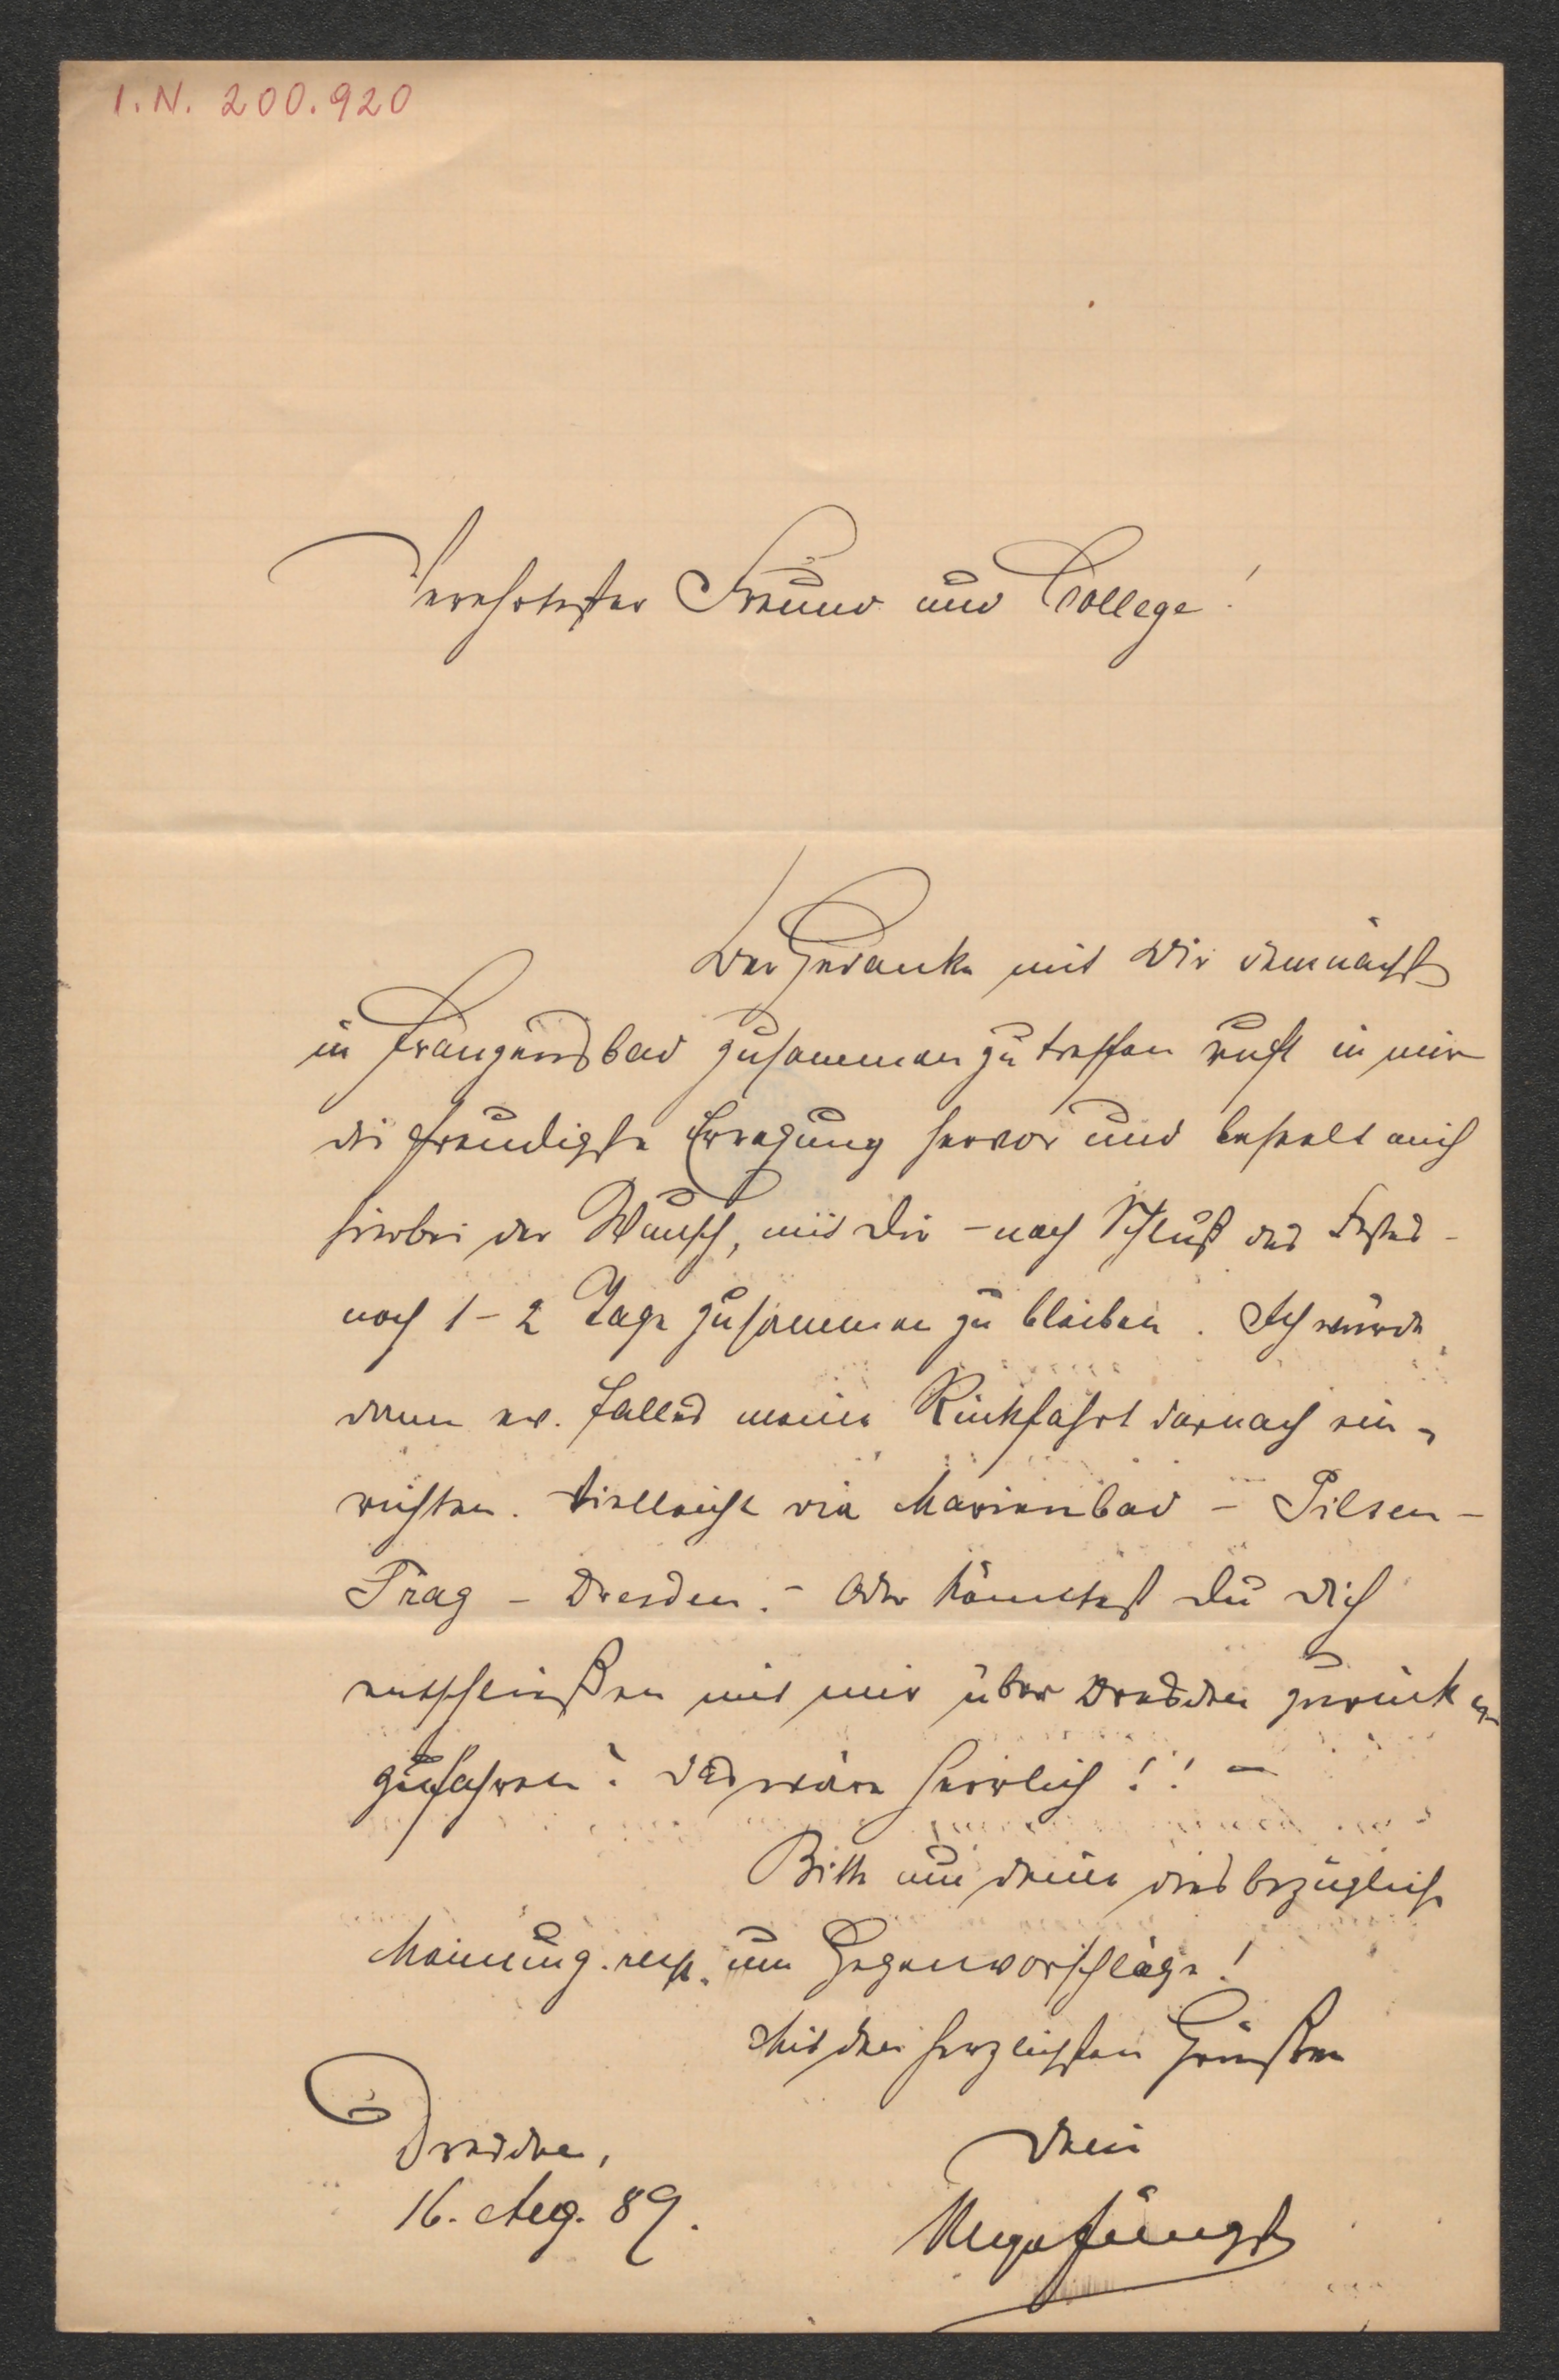 I.N. 200.920
Verehrtester Freund und College!
Der Gedanke mit Dir demnächst
in Franzensbad zusammen zu treffen ruft in mir
die freudigste Erregung hervor und beseelt mich
hierbei der Wunsch, mit Dir - nach Schluß des Festes -
noch 1-2 Tage zusammen zu bleiben. Ich würde
dann ev. Falles meine Rückfahrt darnach ein-
richten. Vielleicht via Marienbad - Pilsen -
Prag - Dresden. - Oder könntest Du Dich
entschließen mit mir über Dresden zurück
zufahren? Das wäre herrlich!! -
Bitte um Deine diesbezügliche
Meinung resp. um Gegenvorschläge!
Mit den herzlichsten Grüßen
Dein
Hugo Jüngst
Dresden,
16. Aug. 89.